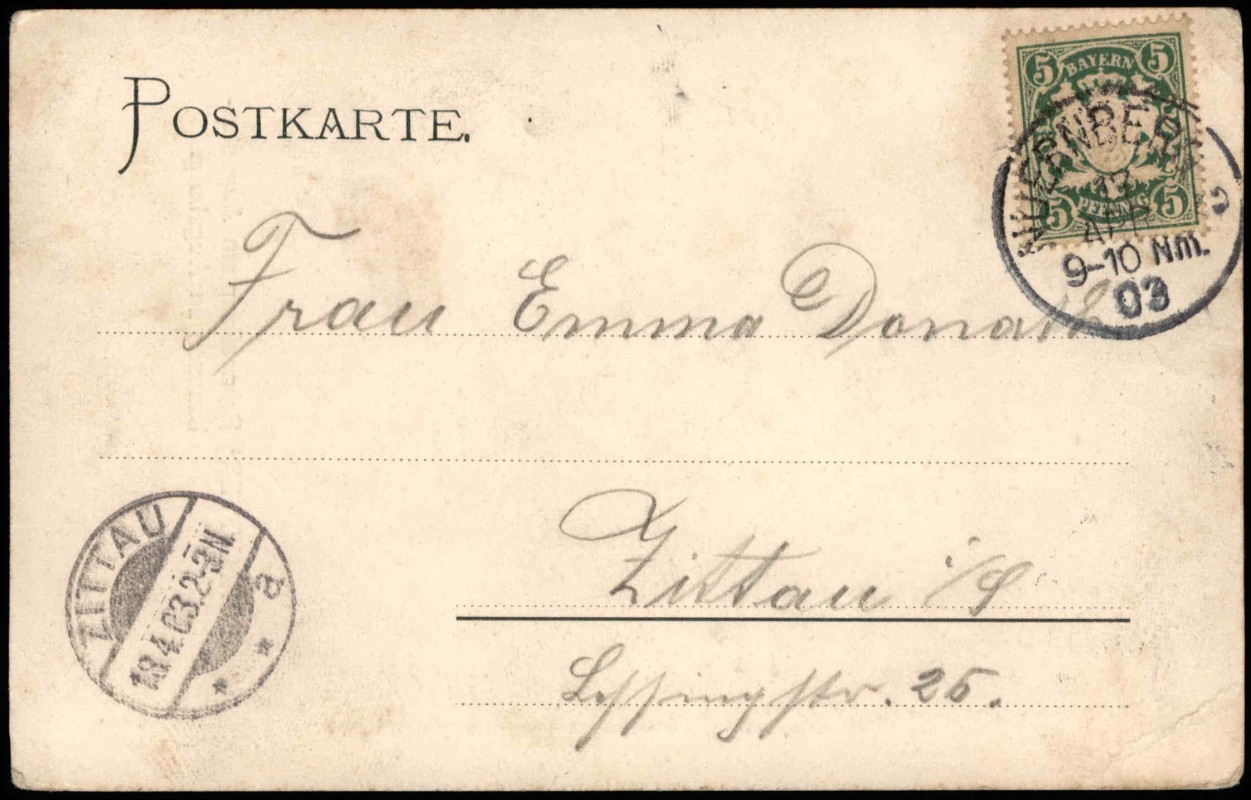 POSTKARTE.
5 BAYERN 5
5 PFENNIG 5
NUERNBERG 2
17
APR
9-10 Nm.
03
Frau Emma Donath
Zittau i/S
Lessingstr. 25.
ZITTAU
18.4.03.2-3N.
a
* *